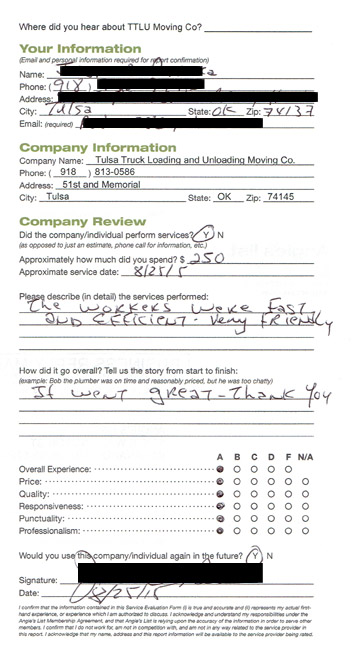 Where did you hear about TTLU Moving Co?
Your Information
(Email and personal information required for report confirmation)
Name:
Phone: (918 )
Address:
City: Tulsa State: OK Zip: 74137
Email: (required)
Company Information
Company Name: Tulsa Truck Loading and Unloading Moving Co.
Phone: ( 918 ) 813-0586
Address: 51st and Memorial
City: Tulsa State: OK Zip: 74145
Company Review
Did the company/individual perform services? Y N
(as opposed to just an estimate, phone call for information, etc.)
Approximately how much did you spend? $ 250
Approximate service date: 8/25/15
Please describe (in detail) the services performed:
The workers were fast
and efficient. very friendly
How did it go overall? Tell us the story from start to finish:
(example: Bob the plumber was on time and reasonably priced, but he was too chatty)
It went great - Thank You
A B C D F N/A
Overall Experience:
Price:
Quality:
Responsiveness:
Punctuality:
Professionalism:
Would you use this company/individual again in the future? Y N
Signature:
Date: 8/25/15
I confirm that the information contained in this Service Evaluation Form (i) is true and accurate and (ii) represents my actual first-
hand experience, or experience which I am authorized to discuss. I acknowledge and understand my responsibilities under the
Angie's List Membership Agreement, and that Angie's List is relying upon the accuracy of the information in order to serve other
members. I confirm that I do not work for, am not in competition with, and am not in any way related to the service provider in
this report. I acknowledge that my name, address and this report information will be available to the service provider being rated.